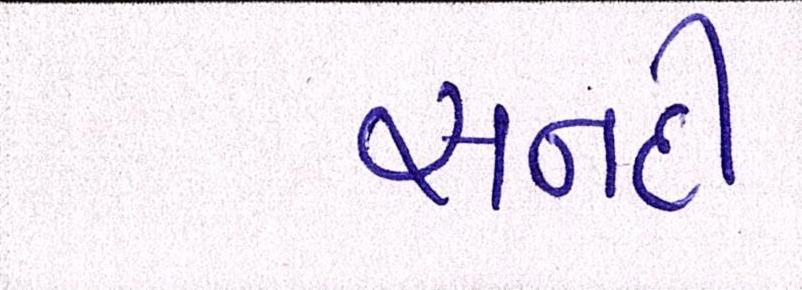 સનદી